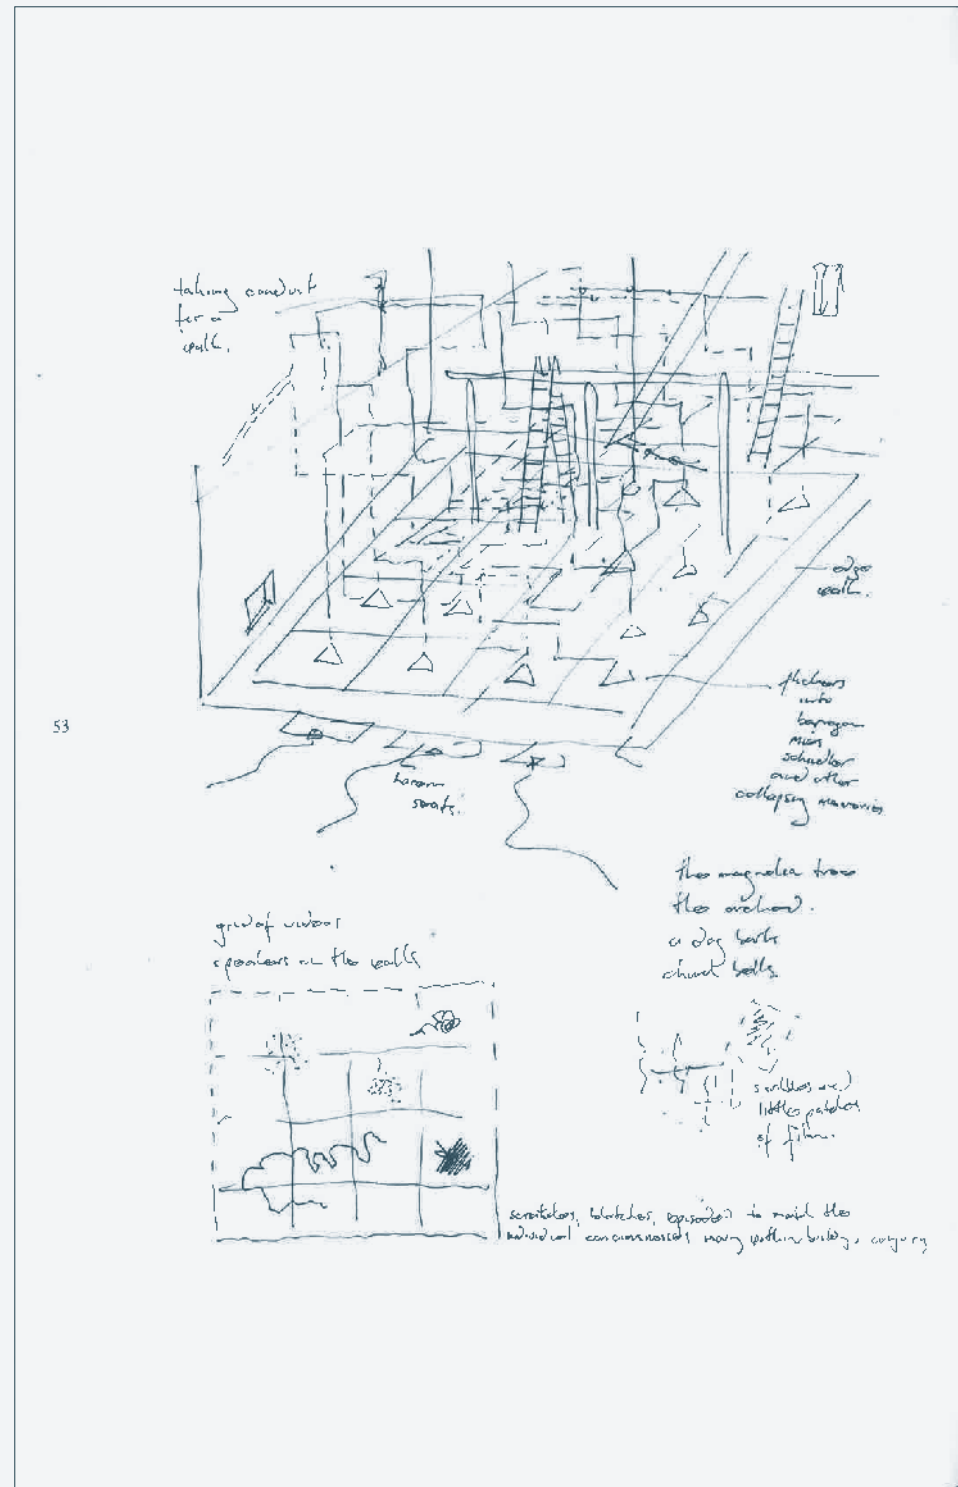 taking conduit
for a
walk.
edge
walk.
flickers
into
mies
schindler
and other
collapsing memories
53
seats.
the magnolia tree
the orchard.
a dog barks
church bells
grid of videos
speakers in the walls
scribbles and
little patches
of film.
scratches, blotches, episodes to match the
individual consciousnesses moving within building,